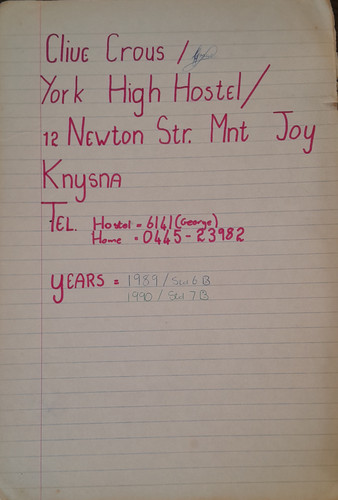 Clive Crous /
York High Hostel/
12 Newton Str. Mnt Joy
Knysna
TEL. Hostel = 6141 (George)
Home = 0445 - 23982
YEARS = 1989 / Std 6 B
1990 / Std 7 B